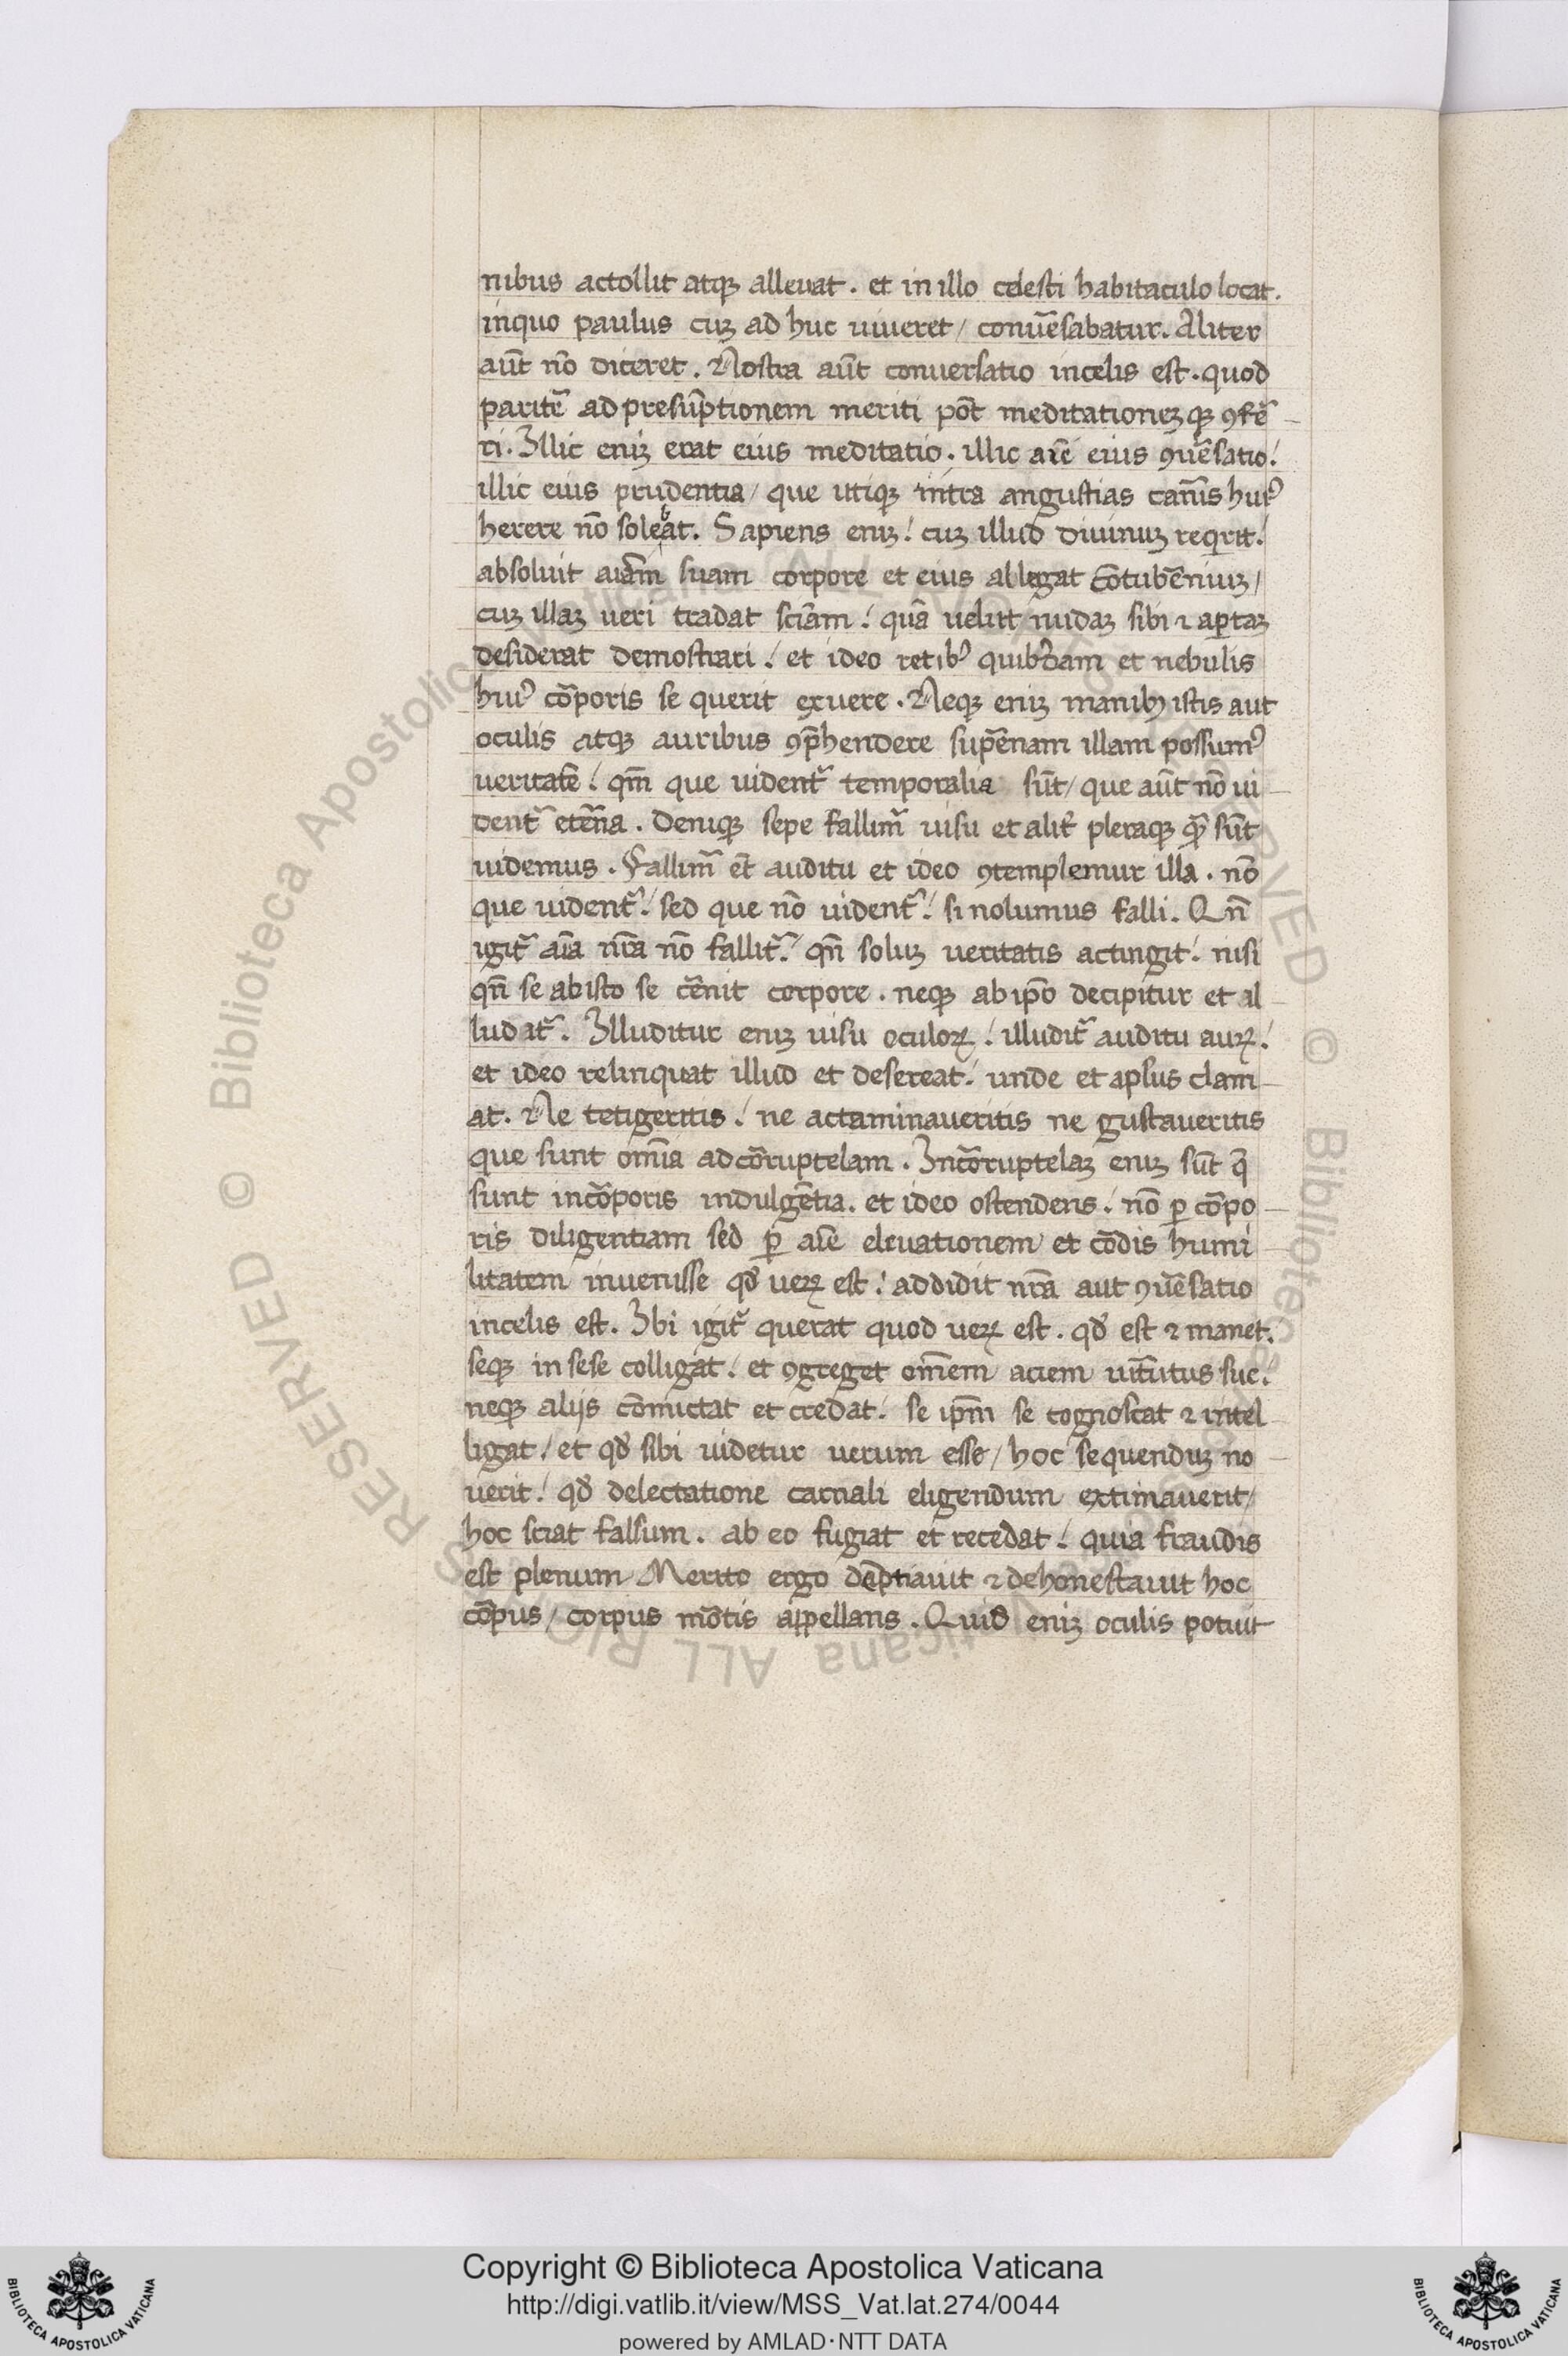 nibus actollit atqꝫ alleuat. et in illo celesti habitaculo locat.
inquo paulus cuꝫ ad huc uiueret/ conuẽsabatur. Aliter
aũt nõ diceret. Nostra aũt conuersatio incelis est. quod
paritẽ ad presũptionem meriti põt meditationeꝫqꝫ ꝯfẽ
ri. Illic eniꝫ erat eius meditatio. illic aĩe eius ꝯuẽsatio!
illic eius prudentia/ que utiqꝫ intra angustias carñis huiꝰ
herere nõ soleat. Sapiens eniꝫ! cuꝫ illud diuinuꝫ reqrit!
absoluit aiãm suam corpore et eius allegat cõtubẽniuꝫ/
cuꝫ illaꝫ ueri tradat sciãm! quã uelut nudaꝫ sibi ⁊ aptaꝫ
desiderat demostrari! et ideo retibꝰ quibꝰdam et nebulis
huiꝰ cõporis se querit exuere. Neqꝫ eniꝫ manibꝫ istis aut
oculis atqꝫ auribus ꝯp̃hendere supẽnam illam possumꝰ
ueritatẽ! qm̃ que uident᷑ temporalia sũt/ que aũt nõ ui
dent᷑ etẽna. Deniqꝫ sepe fallim᷑ uisu et alit᷑ pleraqꝫ qᷓ sũt
uidemus. Fallim᷑ et̃ auditu et ideo ꝯtemplemur illa. nõ
que uident᷑! sed que nõ uident᷑! si nolumus falli. Qñ
igit᷑ aĩa nr̃a nõ fallit᷑! qñ soluꝫ ueritatis actingit! nisi
qñ se abisto se cẽnit corpore. neqꝫ ab ip̃o decipitur et al
ludat᷑. Illuditur eniꝫ uisu oculoꝝ! illudit᷑ auditu auꝝ!
et ideo relinquat illud et desereat! unde et aplus clam
at. Ne tetigeritis! ne actaminaueritis ne gustaueritis
que sunt om̃ia adcõruptelam. Incõruptelaꝫ eniꝫ sũt q̃
sunt incõporis indulgẽtia. et ideo ostendens! nõ ꝑ cõpo
ris diligentiam sed ꝑ aĩe eleuationem et cõdis humi
litatem inuenisse qđ ueꝝ est! addidit nr̃a aut ꝯuẽsatio
incelis est. Ibi igit᷑ querat quod ueꝝ est. qđ est ⁊ manet.
seqꝫ in sese colligat! et ꝯgreget om̃em aciem uirt̃utus sue!
neqꝫ alijs cõmictat et credat! se ip̃m se cognoscat ⁊ intel
ligat/ et qđ sibi uidetur uerum esse/ hoc sequenduꝫ no
uerit! qđ delectatione carnali eligendum extimauerit/
hoc sciat falsum. ab eo fugiat et recedat! quia fraudis
est plenum Merito ergo deptiauit ⁊ dehonestauit hoc
cõpus/ corpus mõtis appellans. Quid eniꝫ oculis potuit
© Biblioteca Apostolica Vaticana ALL RIGHTS RESERVED
Copyright © Biblioteca Apostolica Vaticana
http://digi.vatlib.it/view/MSS_Vat.lat.274/0044
powered by AMLAD·NTT DATA
BIBLIOTECA APOSTOLICA VATICANA
BIBLIOTECA APOSTOLICA VATICANA